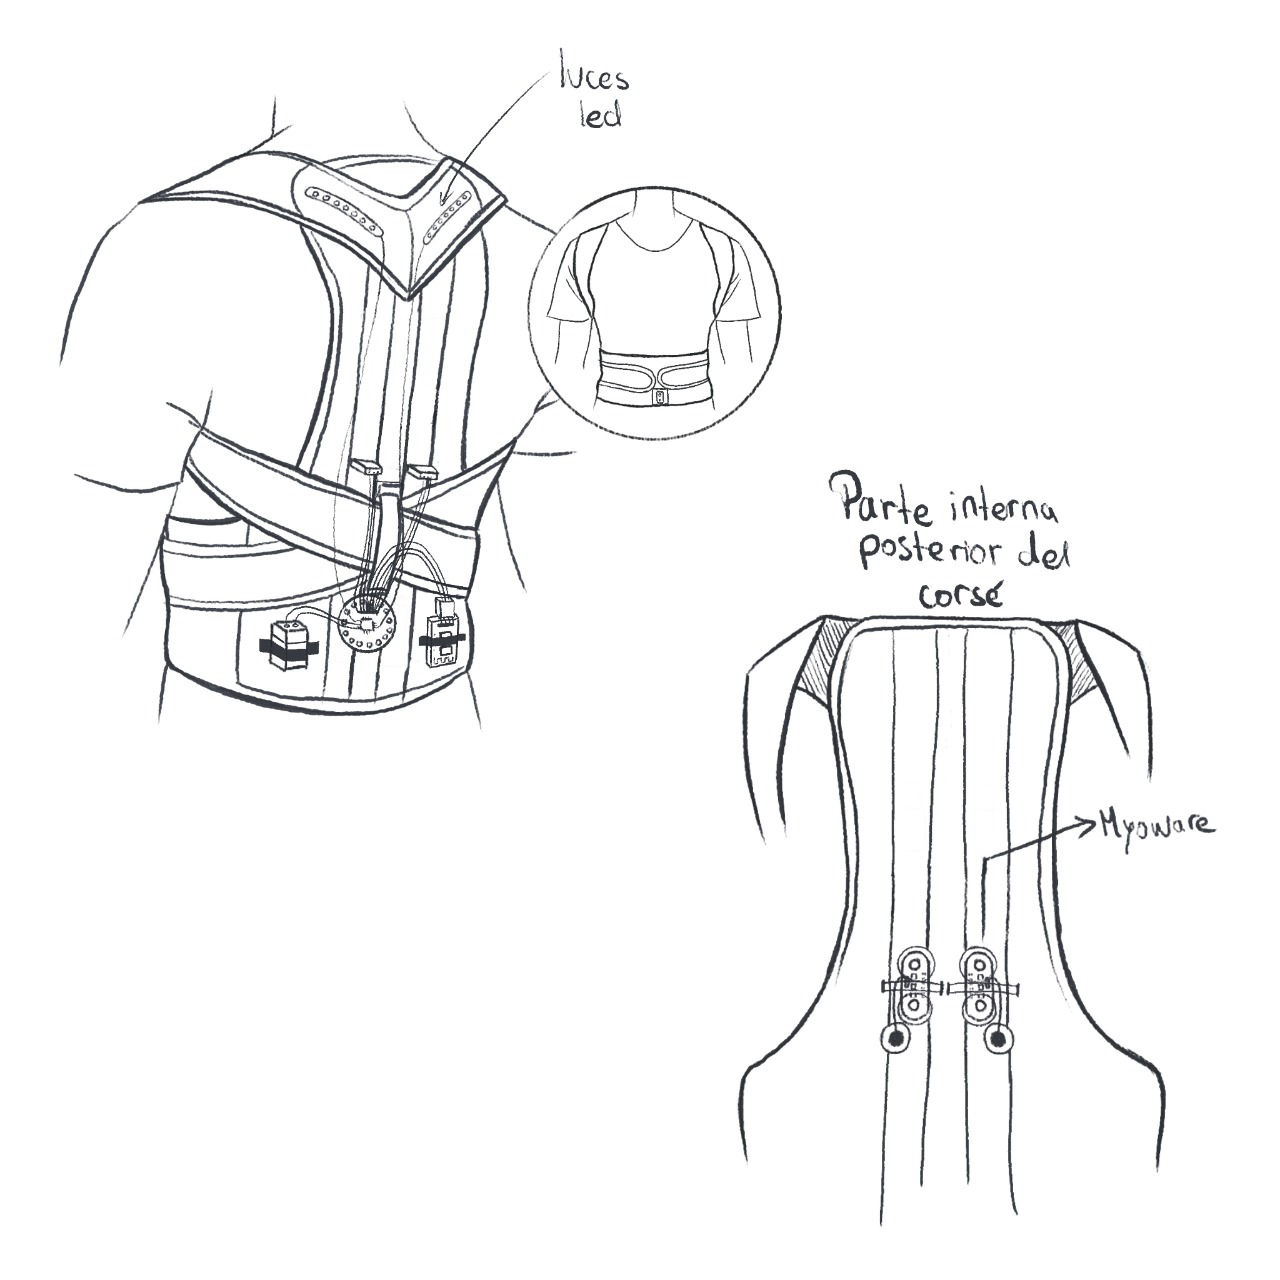 luces
led
Parte interna
posterior del
corsé
Myoware